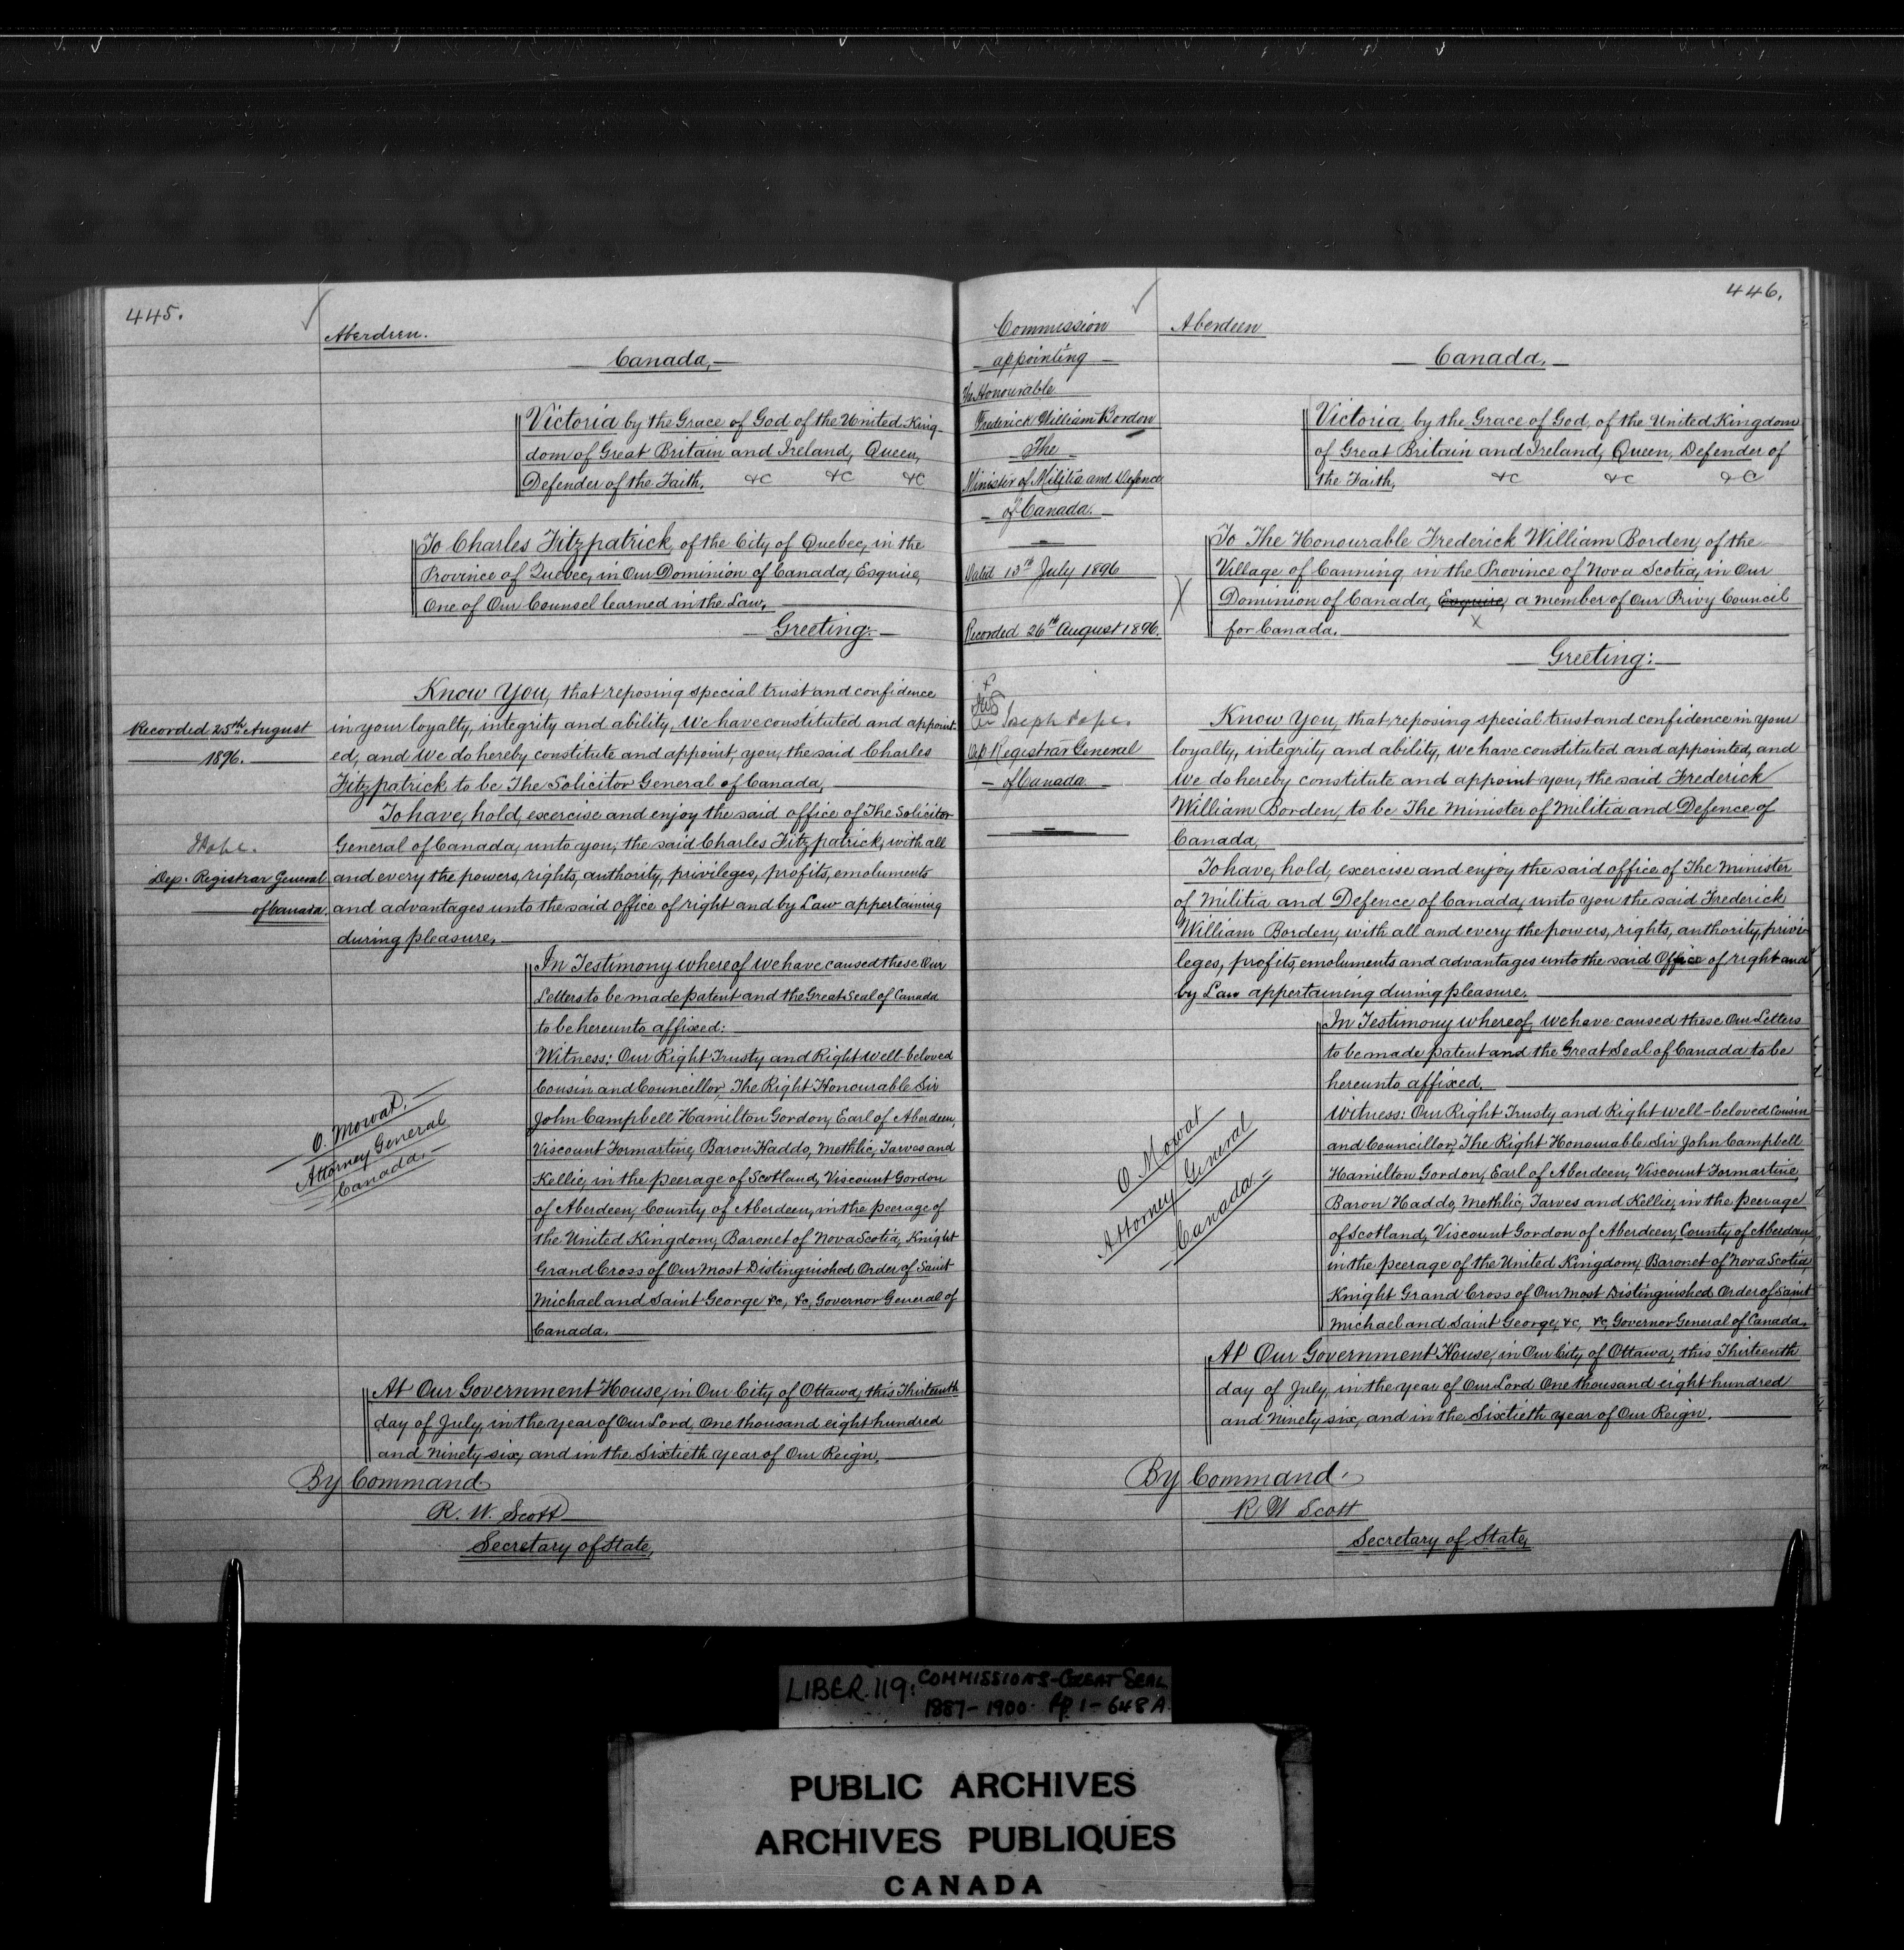 445.
Aberdeen.
Canada,
Victoria by the Grace of God of the United King-
dom of Great Britain and Ireland, Queen,
Defender of the Faith, &c &c &c
To Charles Fitzpatrick, of the City of Quebec, in the
Province of Quebec, in Our Dominion of Canada, Esquire,
One of Our Counsel learned in the Law,
Greeting:
Know You, that reposing special trust and confidence
in your loyalty, integrity and ability, We have constituted and appoint-
ed, and We do hereby constitute and appoint, you, the said Charles
Fitzpatrick to be The Solicitor General of Canada,
To have, hold, excercise and enjoy the said office of The Solicitor
General of Canada, unto you, the said Charles Fitzpatrick, with all
and every the powers, rights, authority, privileges, profits, emoluments
and advantages unto the said Office of right and by Law appertaining
during pleasure,
Recorded, 25th August
1896.
Dep. Registrar General
of Canada.
In Testimony whereof We have caused these Our
Letters to be made patent and the Great Seal of Canada
to be hereunto affixed:
Witness: Our Right Trusty and Right well-beloved
Cousin and Councillor, The Right Honourable Sir
John Campbell Hamilton Gordon, Earl of Aberdeen,
Viscount Formartine, Baron Haddo, Methlic, Tarves and
Kellie, in the peerage of Scotland, Viscount Gordon
of Aberdeen, County of Aberdeen, in the peerage of
the United Kingdom, Baronet of Nova Scotia, Knight
Grand Cross of Our Most Distinguished Order of Saint
Michael and Saint George &c, &c, Governor General of
Canada,
O. Mowat.
Attorney General
Canada.
At Our Government House, in Our City of Ottawa, this Thirteenth
day of July, in the year of Our Lord, One thousand eight hundred
and Ninety six, and in the Sixtieth year of Our Reign.
By Command
R. W. Scott
Secretary of State,
446.
Commission
appointing
The Honourable
Frederick William Bordon
The
Minister of Militia and Defence
of Canada.
Dated 13th July 1896
Recorded 26th August 1896.
Joseph Pope.
Dep Registrar General
of Canada.
Aberdeen
Canada.
Victoria, by the Grace of God, of the United Kingdom
of Great Britain and Ireland, Queen, Defender of
the Faith, &c &c &c
To The Honourable Frederick William Borden, of the
Village of Canning, in the Province of Nova Scotia, in Our
Dominion of Canada, Esquire, a member of Our Privy Council
for Canada.
Greeting:
Know You, that reposing special trust and confidence in your
loyalty, integrity and ability, We have constituted and appointed, and
We do hereby constitute and appoint you, the said Frederick
William Borden, to be The Minister of Militia and Defence of
Canada,
To have, hold, excercise and enjoy the said office of The Minister
of Militia and Defence of Canada, unto you the said Frederick
William Borden, with all and every the powers, rights, authority, privi-
leges, profits, emoluments and advantages unto the said Office of right and
by Law appertaining during pleasure.
In Testimony whereof, We have caused these Our Letters
to be made patent and the Great Seal of Canada to be
hereunto affixed.
Witness: Our Right Trusty and Right well-beloved Cousin
and Councillor, The Right Honourable Sir John Campbell
Hamilton Gordon, Earl of Aberdeen, Viscount Formartine,
Baron Haddo, Methlic, Tarves and Kellie, in the peerage
of Scotland, Viscount Gordon of Aberdeen, County of Aberdeen,
in the peerage of the United Kingdom, Baronet of Nova Scotia,
Knight Grand Cross of Our Most Distinguished Order of Saint
Michael and Saint George, &c, &c, Governor General of Canada.
O. Mowat
Attorney General
Canada
At Our Government House, in Our City of Ottawa, this Thirteenth
day of July, in the year of Our Lord One thousand eight hundred
and Ninety six, and in the Sixtieth year of Our Reign.
By Command
R W Scott
Secretary of State,
LIBER. 119: COMMISSIONS-GREAT SEAL
1887-1900. Pp. 1-648A.
PUBLIC ARCHIVES
ARCHIVES PUBLIQUES
CANADA